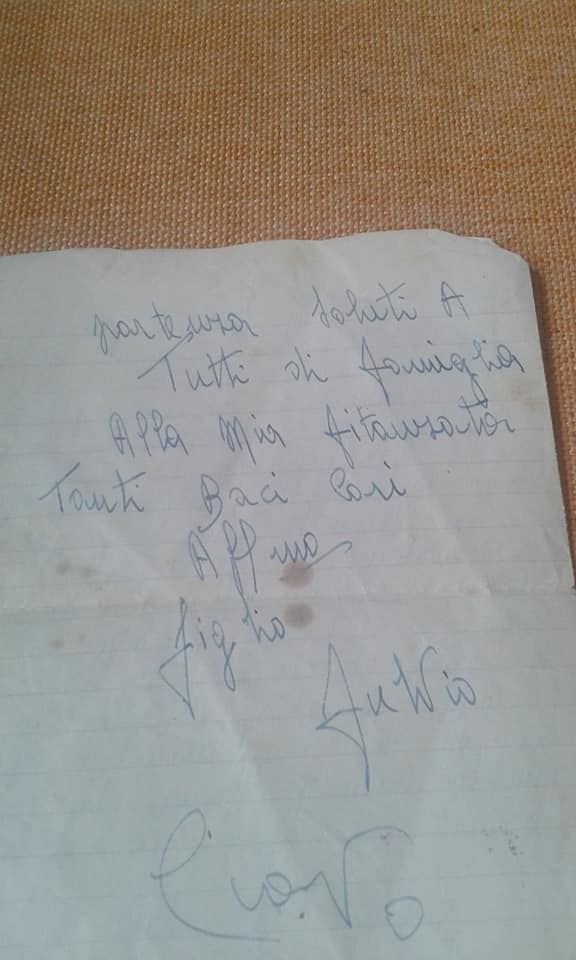 partenza Saluti A
Tutti di famiglia
Alla Mia fitanzata
Tanti Baci Cari
Aff mo
figlio